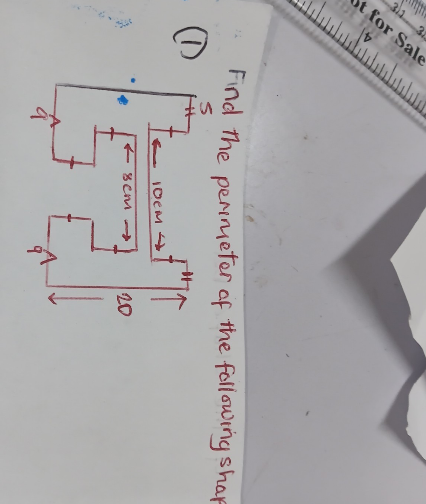 Find the perimeter of the following shap
(1)
5
10cm
8cm
20
9
9
ot for Sale